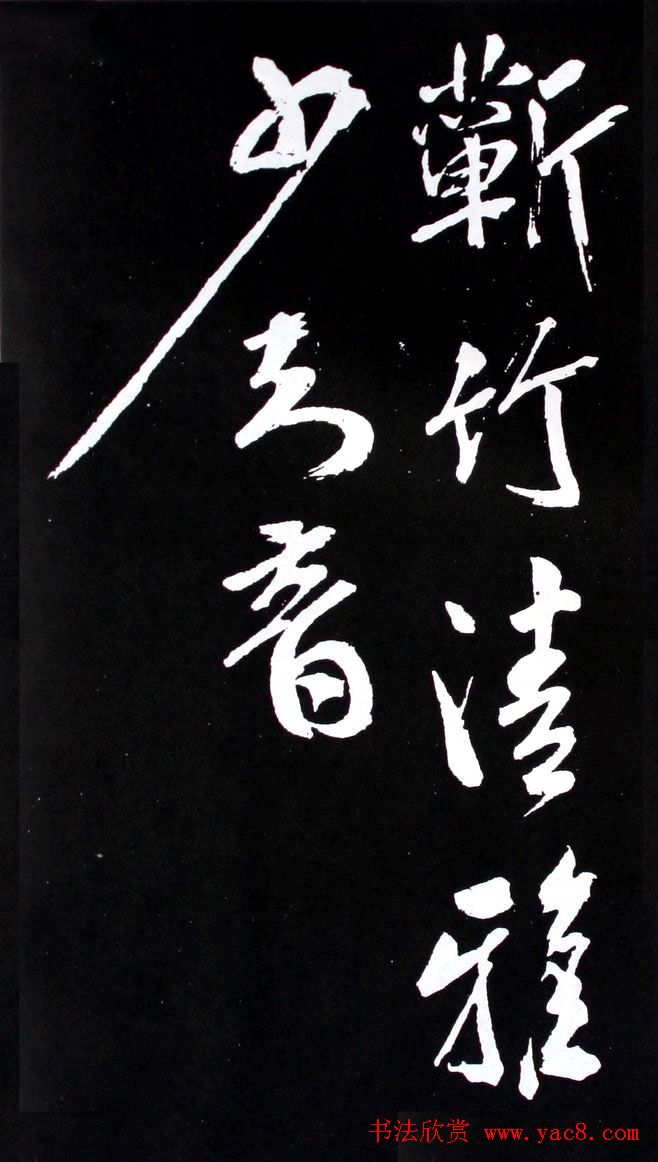 蘄竹清雅
少知音
书法欣赏 www.yac8.com